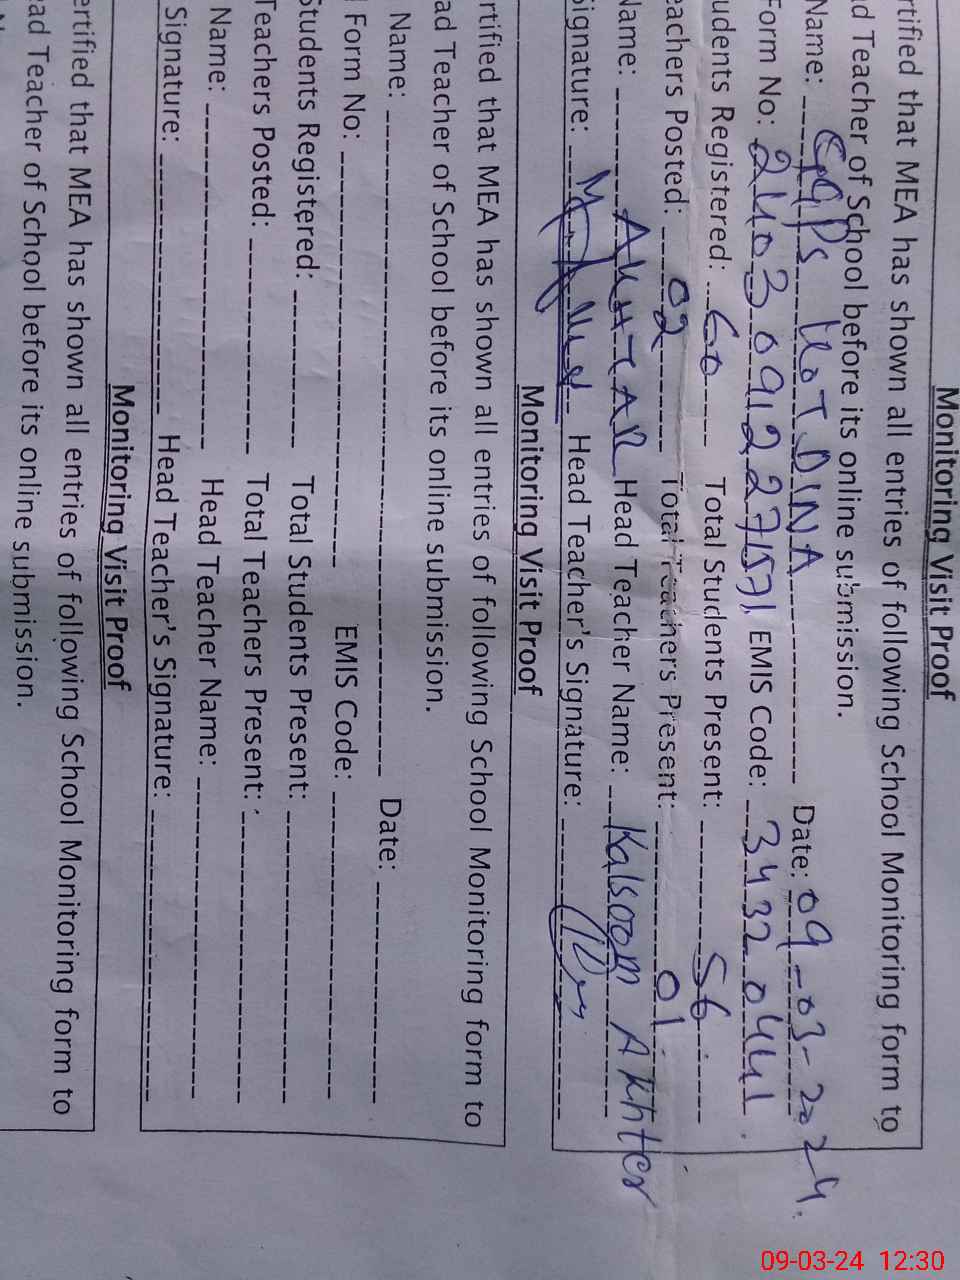 Monitoring Visit Proof
rtified that MEA has shown all entries of following School Monitoring form to
ad Teacher of School before its online submission.
Name: GGPS KOT DINA Date: 09-03-2024.
Form No: 24030912271571, EMIS Code: 34320441.
udents Registered: 60 Total Students Present: 56
eachers Posted: 02 Total Teachers Present: 01
Name: AKHTAR Head Teacher Name: Kalsoom Akhter
Signature: Head Teacher's Signature:
Monitoring Visit Proof
rtified that MEA has shown all entries of following School Monitoring form to
ad Teacher of School before its online submission.
Name: Date:
Form No: EMIS Code:
Students Registered: Total Students Present:
Teachers Posted: Total Teachers Present:
Name: Head Teacher Name:
Signature: Head Teacher's Signature:
Monitoring Visit Proof
ertified that MEA has shown all entries of following School Monitoring form to
ead Teacher of School before its online submission.
09-03-24 12:30